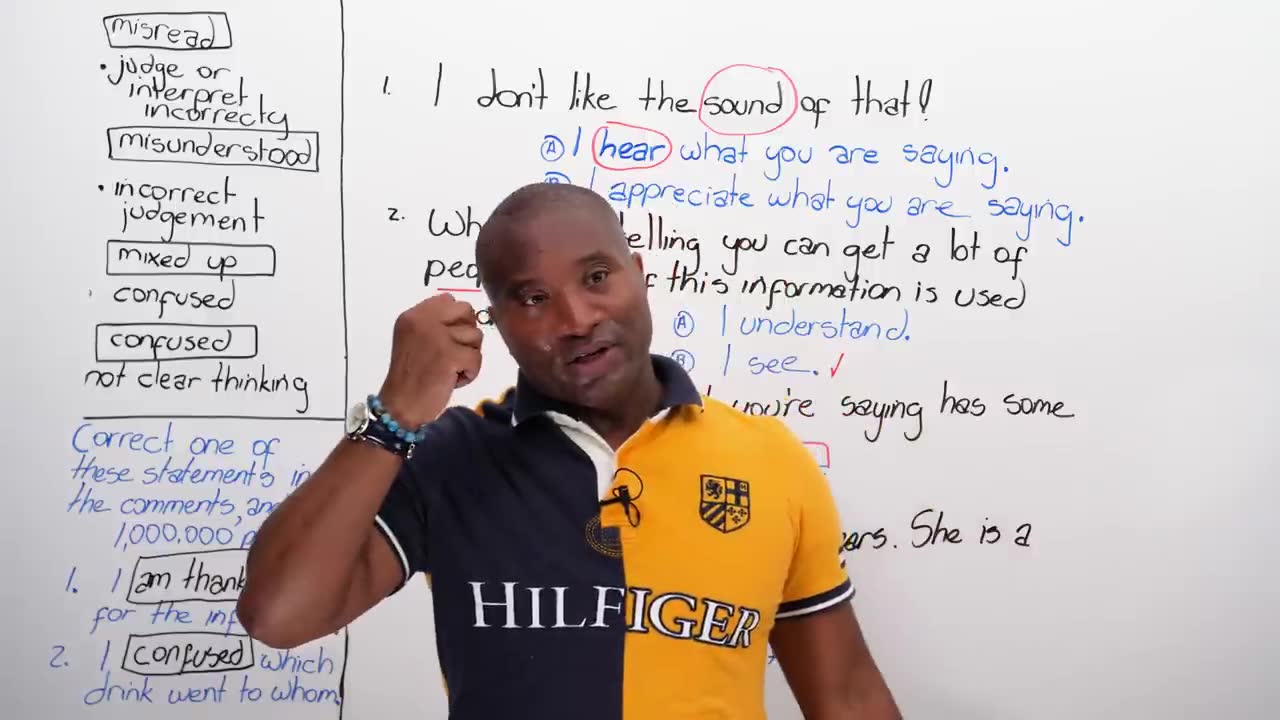 misread
• judge or
interpret
incorrecty
misunderstood
• incorrect
judgement
mixed up
confused
confused
not clear thinking
Correct one of
these statements in
the comments, an
1,000,000 p
1. I am thank
for the inf
2. I confused which
drink went to whom.
1. I don't like the sound of that!
Ⓐ I hear what you are saying.
Ⓑ I appreciate what you are saying.
2. Wh elling you can get a lot of
peo f this information is used
Ⓐ I understand.
Ⓑ I see. ✓
you're saying has some
ers. She is a
HILFIGER